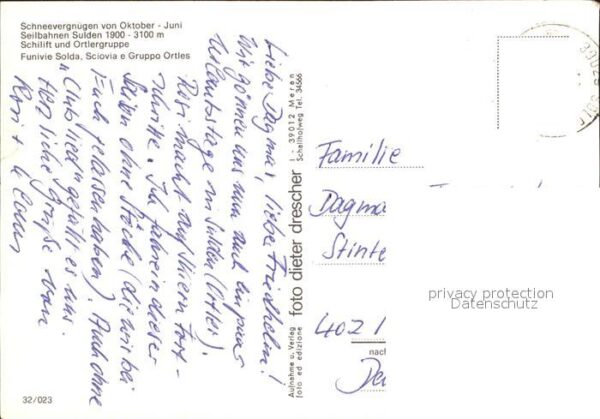 Schneevergnügen von Oktober - Juni
Seilbahnen Sulden 1900 - 3100 m
Schilift und Ortlergruppe
Funivie Solda, Sciovia e Gruppo Ortles
Liebe Dagmar, liebe Friedhelm!
Wir gönnen uns nun auch ein paar
Urlaubstage in Sulden (Ortles).
Rosi macht auf Skiern Fort-
schritte. Ich fahre in dieser
Saison ohne Stöcke (die wir bei
Euch gelassen haben). Auch ohne
"Clublied" gefällt es uns.
Herzliche Grüße von
Rosi + Claus
Aufnahme u. Verlag
foto ed edizione
foto dieter drescher
I - 39012 Meran
Schallhofweg Tel. 34566
39029
Familie
Dagma
Stinte
4021
nach
privacy protection
Datenschutz
32/023